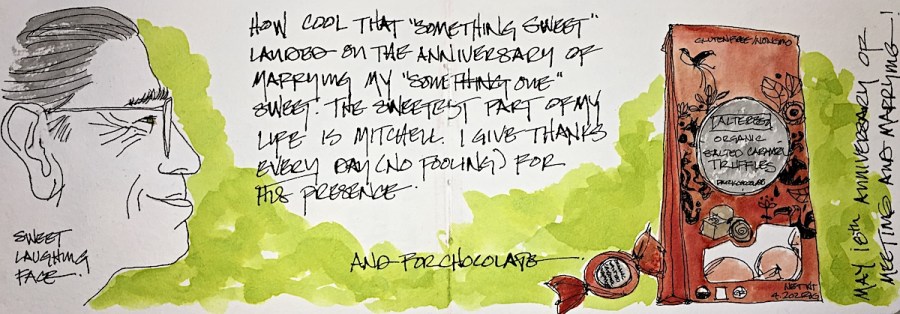 HOW COOL THAT "SOMETHING SWEET"
LANDED ON THE ANNIVERSARY OF
MARRYING MY "SOMETHING ONE"
SWEET. THE SWEETEST PART OF MY
LIFE IS MITCHELL. I GIVE THANKS
EVERY DAY (NO FOOLING!) FOR
HIS PRESENCE.
AND FOR CHOCOLATE.
SWEET
LAUGHING
FACE.
GLUTEN FREE/NON GMO
ALTER ECO
ORGANIC
SALTED CARAMEL
TRUFFLES
DARK CHOCOLATE
NET WT
MAY 16TH ANNIVERSARY OF
MEETING AND MARRYING!